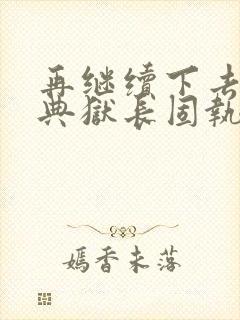 再继续下去
典獄长固執
嫣香未落